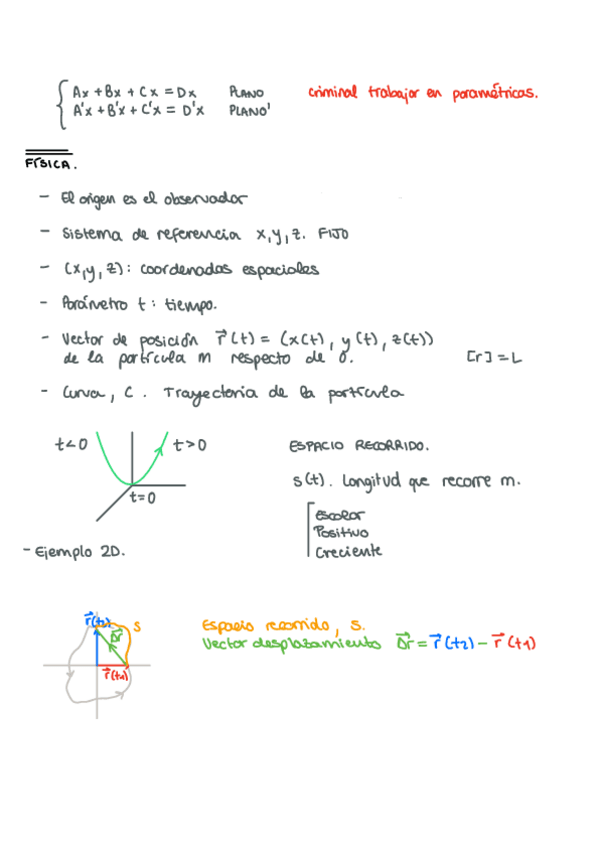 Ax + Bx + Cx = Dx PLANO criminal trabajar en paramétricas.
A'x + B'x + C'x = D'x PLANO'
FÍSICA.
- El origen es el observador
- Sistema de referencia x, y, z. FIJO
- (x, y, z): coordenadas espaciales
- Parámetro t: tiempo.
- Vector de posición r⃗(t) = (x(t), y(t), z(t))
de la partícula m respecto de O. [r] = L
- Curva, C. Trayectoria de la partícula
t<0 t>0 ESPACIO RECORRIDO.
s(t). Longitud que recorre m.
t=0
Escalar
Positivo
Creciente
- Ejemplo 2D.
r⃗(t2) S
Δ⃗r
r⃗(t1)
Espacio recorrido, s.
Vector desplazamiento Δ⃗r = r⃗(t2) - r⃗(t1)